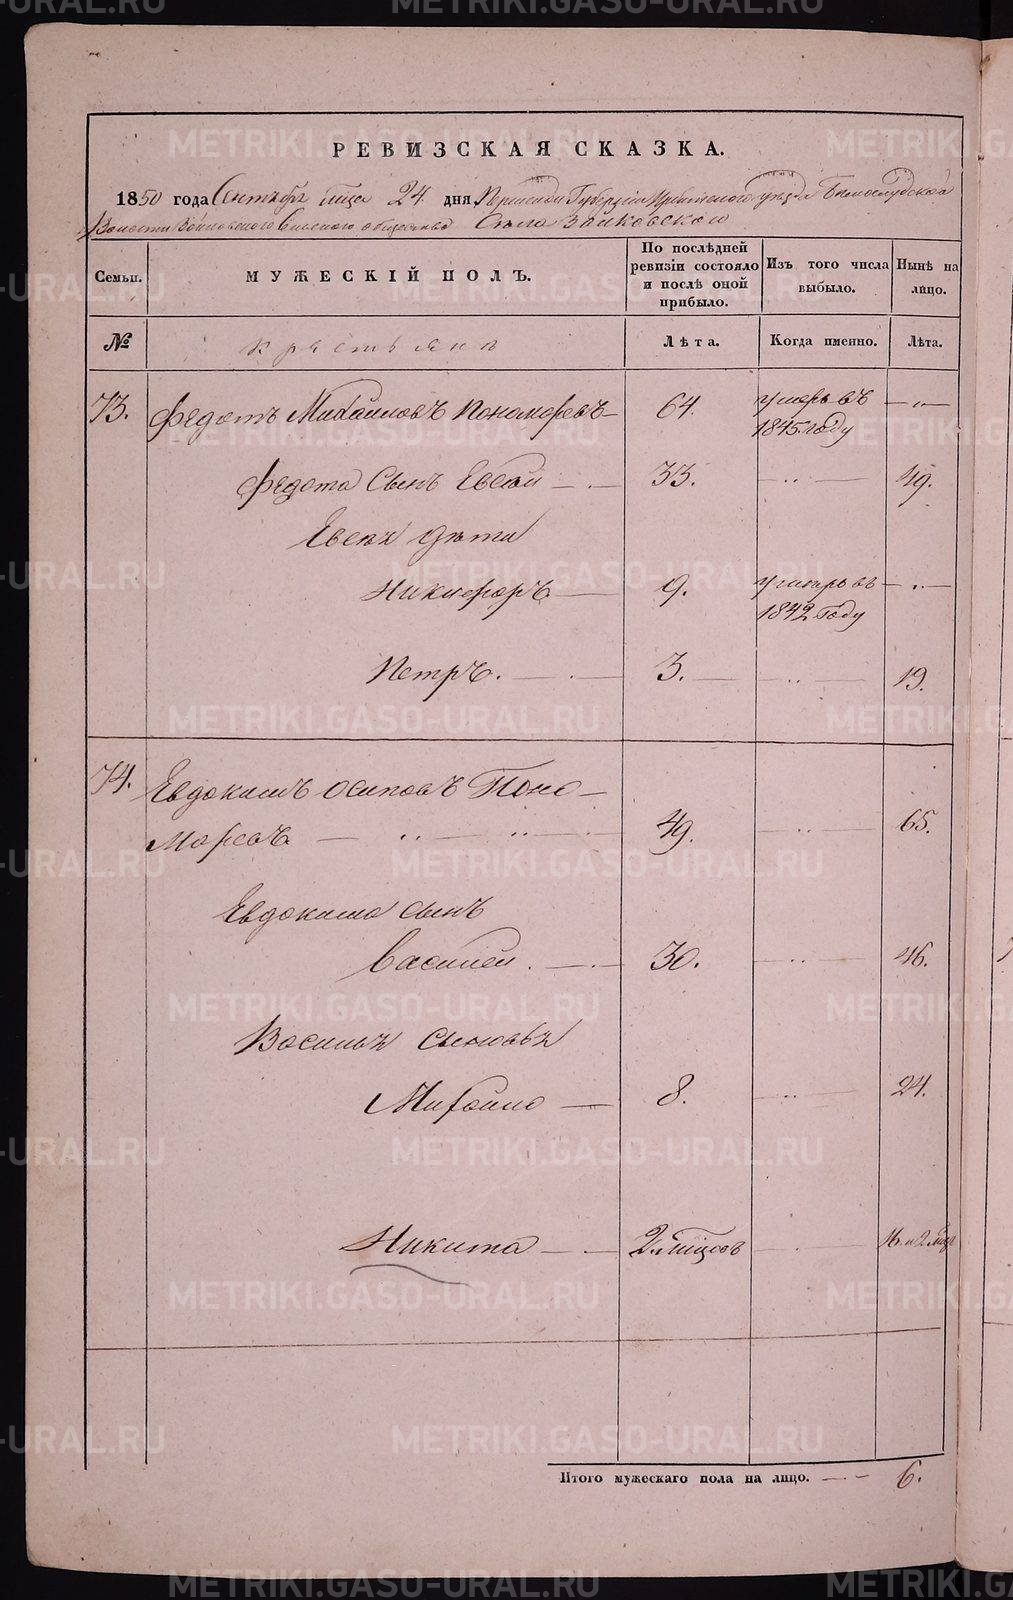 РЕВИЗСКАЯ СКАЗКА.
1850 года Сентября мца 24 дня Пермской Губернии Ирбитского уезда Белослудской
Волости Сельского общества Села Зайковского
Семьи. МУЖЕСКІЙ ПОЛЪ. По послѣдней ревизіи состояло и послѣ оной прибыло. Изъ того числа выбыло. Нынѣ на лицо.
№ крестьяне Лѣта. Когда именно. Лѣта.
73. Федотъ Михаиловъ Пономоревъ 64. умеръ въ 1845 году — „ —
Федота Сынъ Евсей 33. — „ — 49.
Евсея дѣти
Никифоръ 9. умеръ въ 1842 Году — „ —
Петръ. 3. — „ — 19.
74. Евдокимъ Осиповъ Поно-
моревъ — „ — „ — 49. — „ — 65.
Евдокима сынъ
Василей 30. — „ — 46.
Василья сыновья
Михайло 8. — „ — 24.
Никита 2 мѣсцовъ — „ — 16 и 2 мѣс
Итого мужескаго пола на лицо. 6.
METRIKI.GASO-URAL.RU